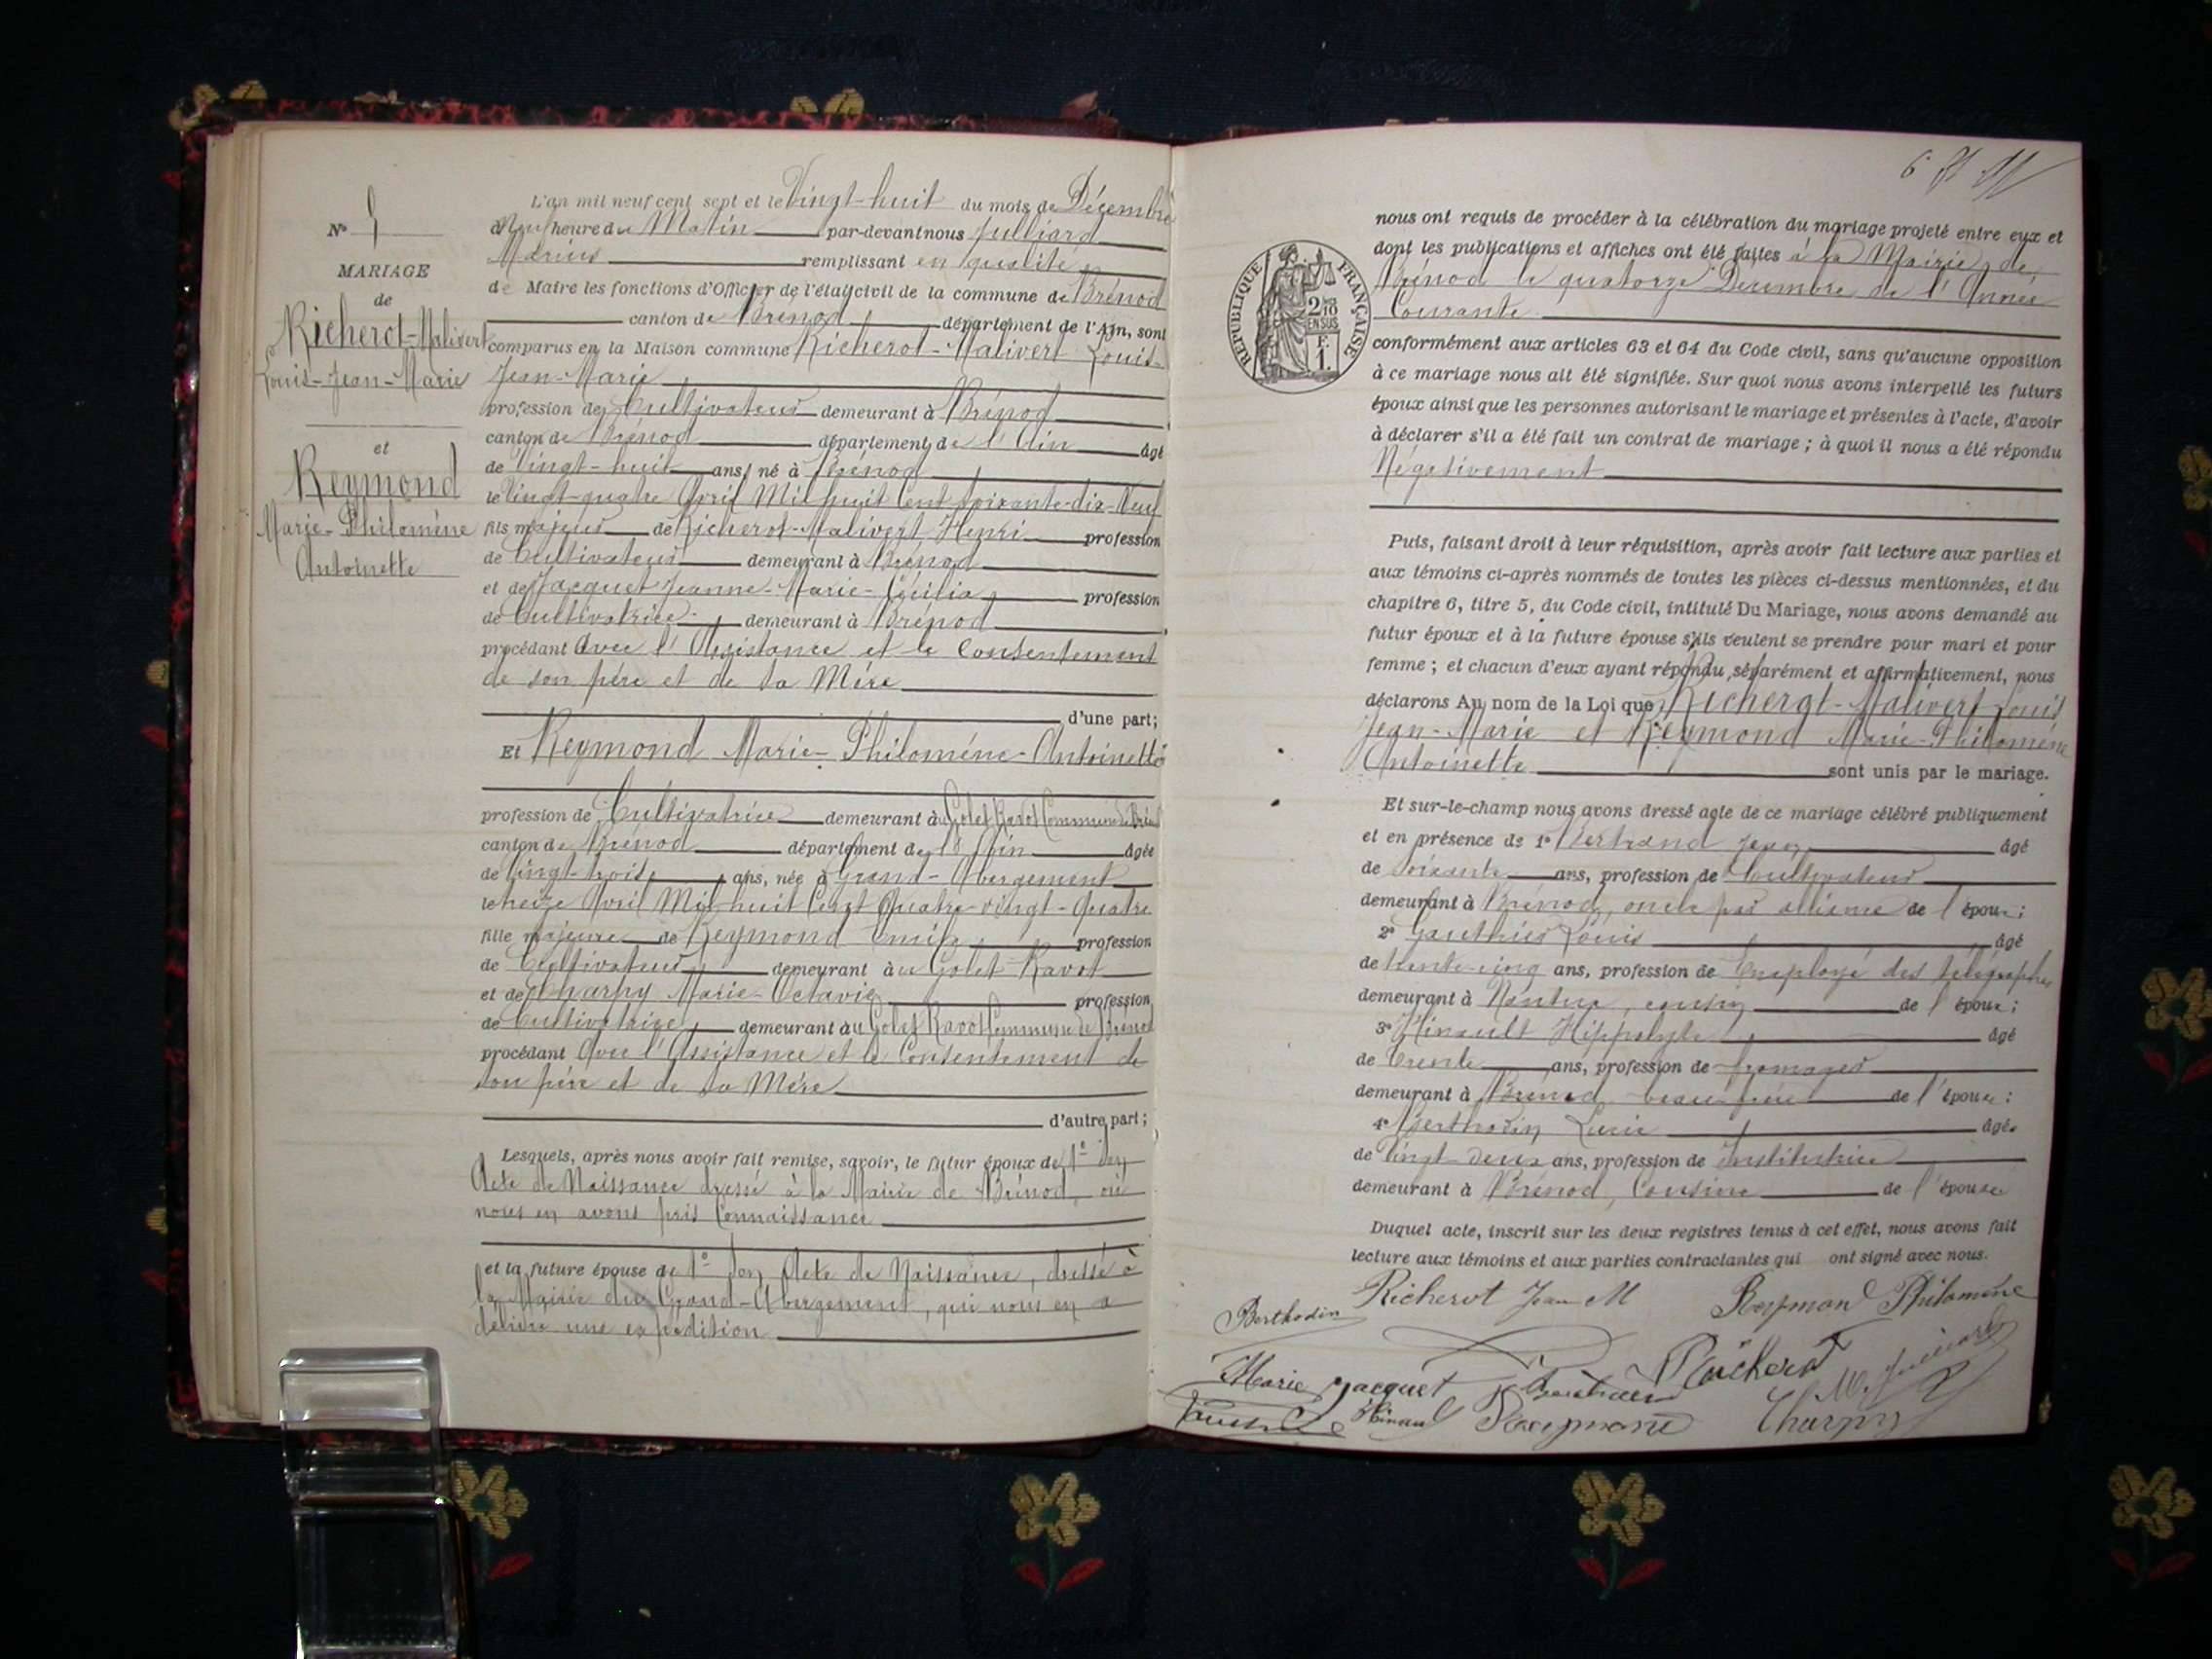 Nº
MARIAGE
de
Richerot-Malivert
Louis-Jean-Marie
et
Reymond
Marie-Philomène
Antoinette
L'an mil neuf cent sept et le Vingt-huit du mois de Décembre
à Neuf heure du Matin par-devant nous Julliard
Marius remplissant en qualité
de Maire les fonctions d'Officier de l'état civil de la commune de Brénod
canton de Brénod département de l'Ain, sont
comparus en la Maison commune Richerot-Malivert Louis-
Jean-Marie
profession de Cultivateur demeurant à Brénod
canton de Brénod département de l'Ain âgé
de Vingt-huit ans, né à Brénod
le Vingt-quatre Avril Mil huit Cent Soixante-dix-Neuf
fils majeur de Richerot-Malivert Henri profession
de Cultivateur demeurant à Brénod
et de Jacquet Jeanne-Marie-Cécilia profession
de Cultivatrice demeurant à Brénod
procédant Avec l'Assistance et le Consentement
de son père et de sa Mère
d'une part;
Et Reymond Marie-Philomène-Antoinette
profession de Cultivatrice demeurant au Golet Ravot Commune de Brénod
canton de Brénod département de l'Ain âgée
de Vingt-trois ans, née à Grand-Abergement
le treize Avril Mil huit Cent Quatre-vingt-Quatre
fille majeure de Reymond Emile profession
de Cultivateur demeurant au Golet-Ravot
et de Charpy Marie-Octavie profession
de Cultivatrice demeurant au Golet Ravot Commune de Brénod
procédant Avec l'Assistance et le Consentement de
son père et de sa Mère
d'autre part;
Lesquels, après nous avoir fait remise, savoir, le futur époux de 1º Son
Acte de Naissance dressé à la Mairie de Brénod, où
nous en avons pris Connaissance
et la future épouse de 1º Son Acte de Naissance, dressé à
la Mairie du Grand-Abergement, qui nous en a
délivré une expédition
6
RÉPUBLIQUE FRANÇAISE
2/10
EN SUS
F.
1.
nous ont requis de procéder à la célébration du mariage projeté entre eux et
dont les publications et affiches ont été faites à la Mairie de
Brénod le quatorze Décembre de l'Année
Courante
conformément aux articles 63 et 64 du Code civil, sans qu'aucune opposition
à ce mariage nous ait été signifiée. Sur quoi nous avons interpellé les futurs
époux ainsi que les personnes autorisant le mariage et présentes à l'acte, d'avoir
à déclarer s'il a été fait un contrat de mariage; à quoi il nous a été répondu
Négativement
Puis, faisant droit à leur réquisition, après avoir fait lecture aux parties et
aux témoins ci-après nommés de toutes les pièces ci-dessus mentionnées, et du
chapitre 6, titre 5, du Code civil, intitulé Du Mariage, nous avons demandé au
futur époux et à la future épouse s'ils veulent se prendre pour mari et pour
femme; et chacun d'eux ayant répondu séparément et affirmativement, nous
déclarons Au nom de la Loi que Richerot-Malivert Louis
Jean-Marie et Reymond Marie-Philomène
Antoinette sont unis par le mariage.
Et sur-le-champ nous avons dressé acte de ce mariage célébré publiquement
et en présence de 1º Bertrand Jean âgé
de soixante ans, profession de Cultivateur
demeurant à Brénod, oncle par alliance de l'époux;
2º Gauthier Louis âgé
de trente-cinq ans, profession de Employé des télégraphes
demeurant à Nantua, cousin de l'époux;
3º Hinault Hippolyte âgé
de Trente ans, profession de fromager
demeurant à Brénod beau-frère de l'épouse;
4º Berthodin Lucie âgée
de Vingt-deux ans, profession de Institutrice
demeurant à Brénod, Cousine de l'épouse
Duquel acte, inscrit sur les deux registres tenus à cet effet, nous avons fait
lecture aux témoins et aux parties contractantes qui ont signé avec nous.
Berthodin Richerot Jean M Reymond Philomène
Marie Jacquet Bertrand Richerot M. Julliard
Hinault Reymond Charpy